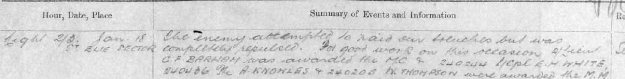 Hour, Date, Place
Summary of Events and Information
Night 2/3 Jan 18 The enemy attempted to raid our trenches but was
ST. ELIE SECTOR completely repulsed. For good work on this occasion 2/Lieut
G.F BARHAM was awarded the M.C & 240244 L/Cpl E.H WHITE,
240486 Pte A KNOWLES & 240208 W. THOMPSON were awarded the M.M